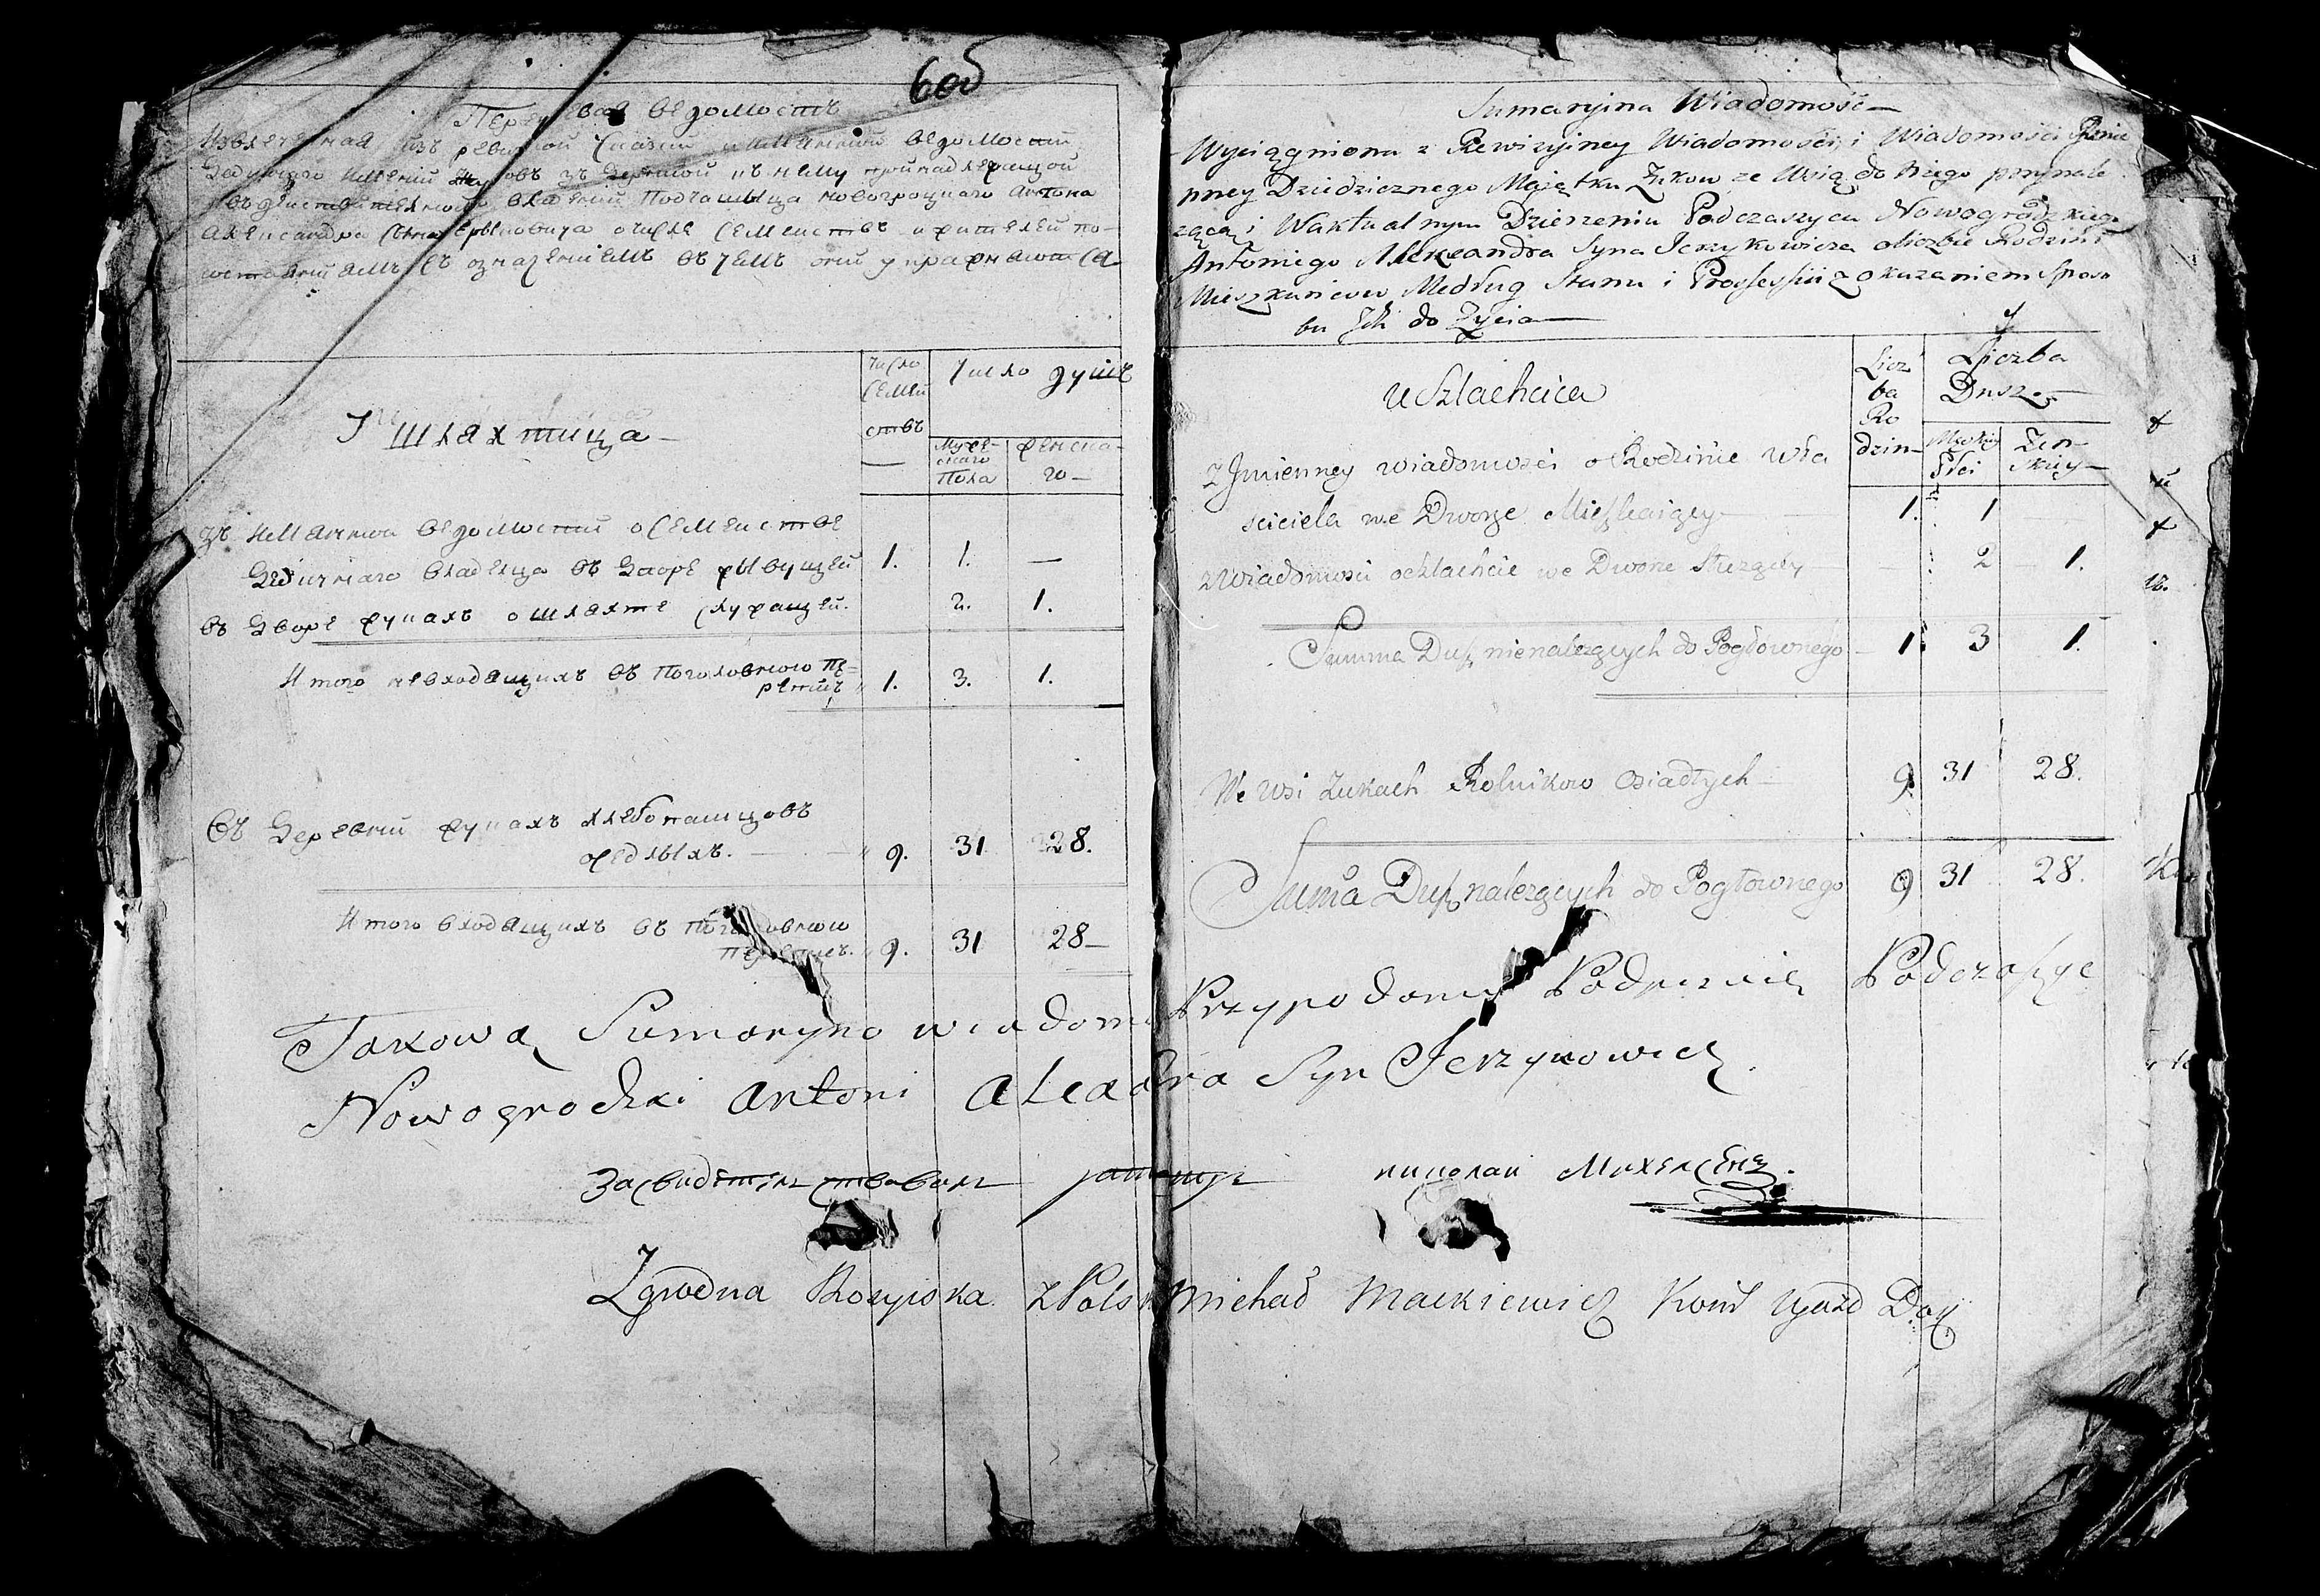 6 об
ведомость
из ревизкой сказки и имянной ведомости
имений Жуковъ зъ Деревнюй къ нему принадлежащой
въ действителномъ владений Подчашыца новогроцкаго Антона
Александра сына Ерыковича о числе семействъ и жителей по
съ означениемъ въ чемъ они упражнаютса
Число семействъ
Число душъ
Мужескаго пола
женскаго
Шляхтица
зъ имянной ведомости о семействе
Дедичнаго владелца въ Дворе жывущей 1. 1. —
въ Дворе жукахъ о шляхте служащей. 2. 1.
Итого невходящихъ въ поголовную пе-
репись 1. 3. 1.
Въ Деревни жукахъ хлебопашцовъ
оседлыхъ. 9. 31 28.
Итого входящихъ въ поголовную
перепись. 9. 31 28
Sumaryina Wiadomość
Wyciągniona z Rewizyiney Wiadomości i Wiadomości Jmie
nney Dziedzicznego Majątku Żukow ze Wsią do niego przynale
zącą i Waktualnym Dzierzeniu Podczaszyca Nowogrodzkiego
Antoniego Alexandra Syna Jerzykowicza oliczbie Rodzin i
Mieszkancow Według Stanu i Professii z okazaniem Sposo
bu Jch do Życia
Licz
ba
Ro
dzin
Liczba
Dusz
Męskiey
Płci
Żen
skiey
u Szlachcica
z Jmienney wiadomosci o Rodzinie Wła
sciciela we Dworze Mieszkaiącey 1. 1
z Wiadomosci oszlachcie we Dworze Słuzącey 2 1.
Summa Dusz nienalezących do Pogłownego 1. 3 1.
We Wsi Żukach Rolnikow Osiadłych 9 31 28.
Suma Dusz nalezących do Pogłownego 9 31 28.
Takową Sumaryną wiadom Przypodaniu Podpisuię Podczaszyc
Nowogrodzki Antoni Alexandra Syn Jerzykowicz.
Засвидетельствовалъ николай Михелсенъ.
Zgodna Rospiska z Polsk Michał Mackiewicz Kom